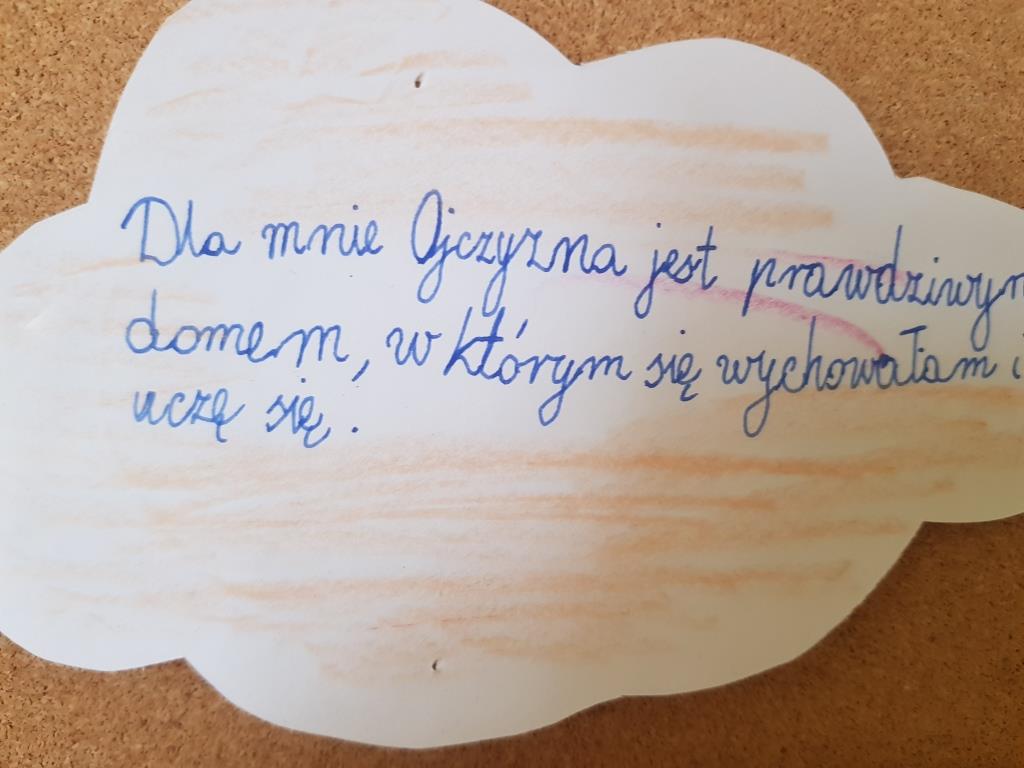 Dla mnie Ojczyzna jest prawdziwym
domem, w którym się wychowałam i
uczę się.